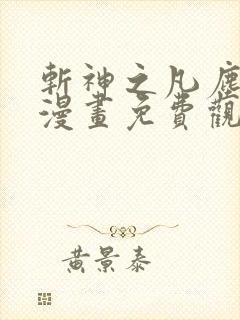 斬神之凡塵
漫畫免費觀
黃景泰